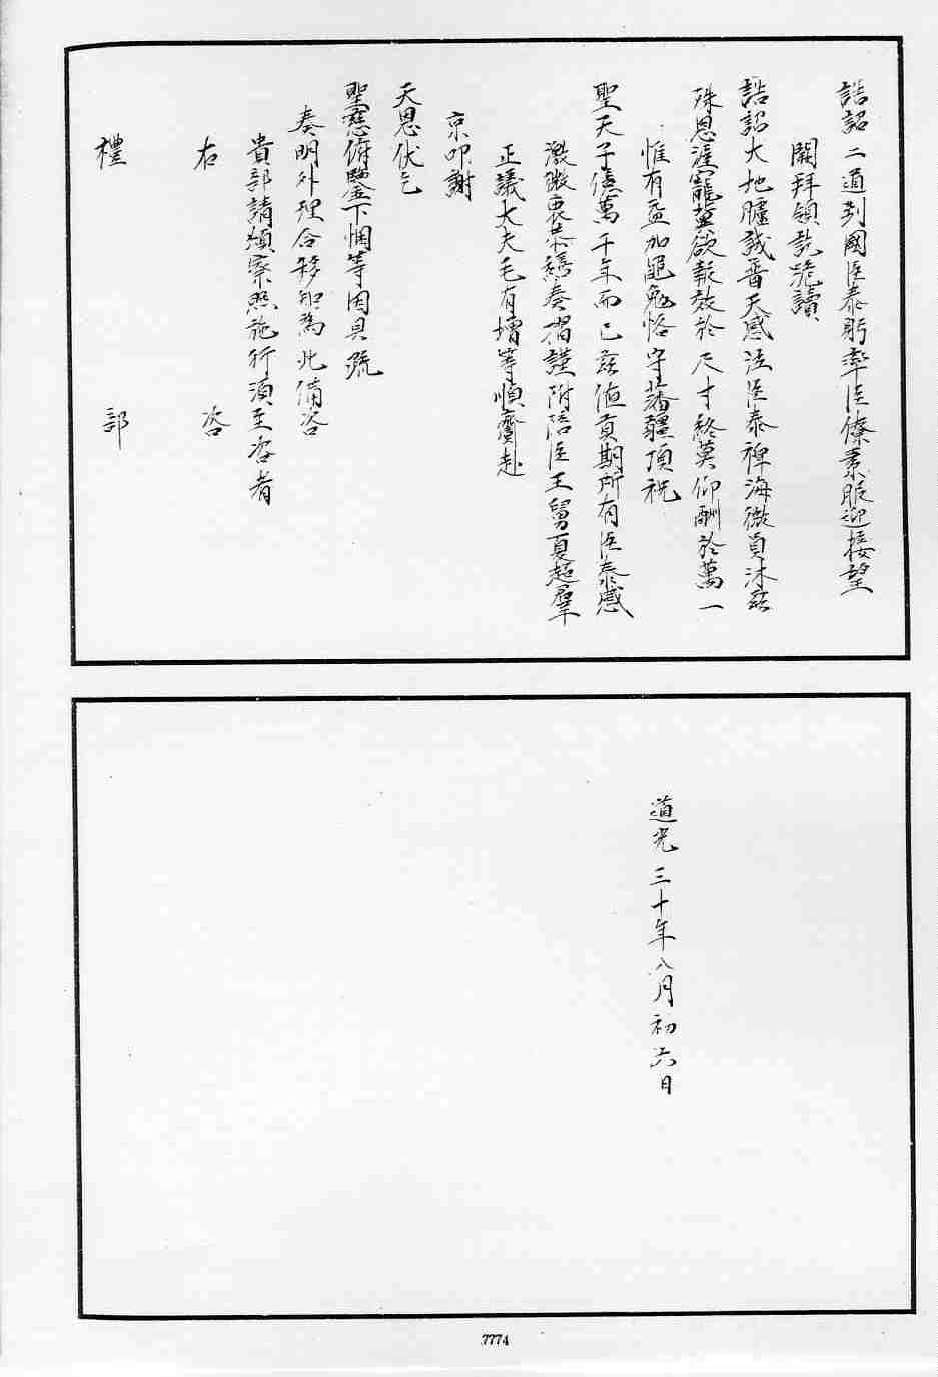 詔詔二道到國臣泰躬率臣僚素服迎接望
闕拜領訖跪讀
詔詔大地臚誠普天感泣臣泰裨海微員沐茲
殊恩渥寵蓋欲報效於尺寸終莫仰酬於萬一
惟有益加黽勉恪守藩疆頂祝
聖天子億萬千年而已茲值貢期所有臣泰感
激微衷恭繕奏摺謹附陪臣王舅夏超群
正議大夫毛有增等順齎赴
京叩謝
天恩伏乞
聖慈俯鑒下悃等因具疏
奏明外理合移知為此備咨
貴部請煩察照施行須至咨者
右 咨
禮 部
道光三十年八月初六日
7774